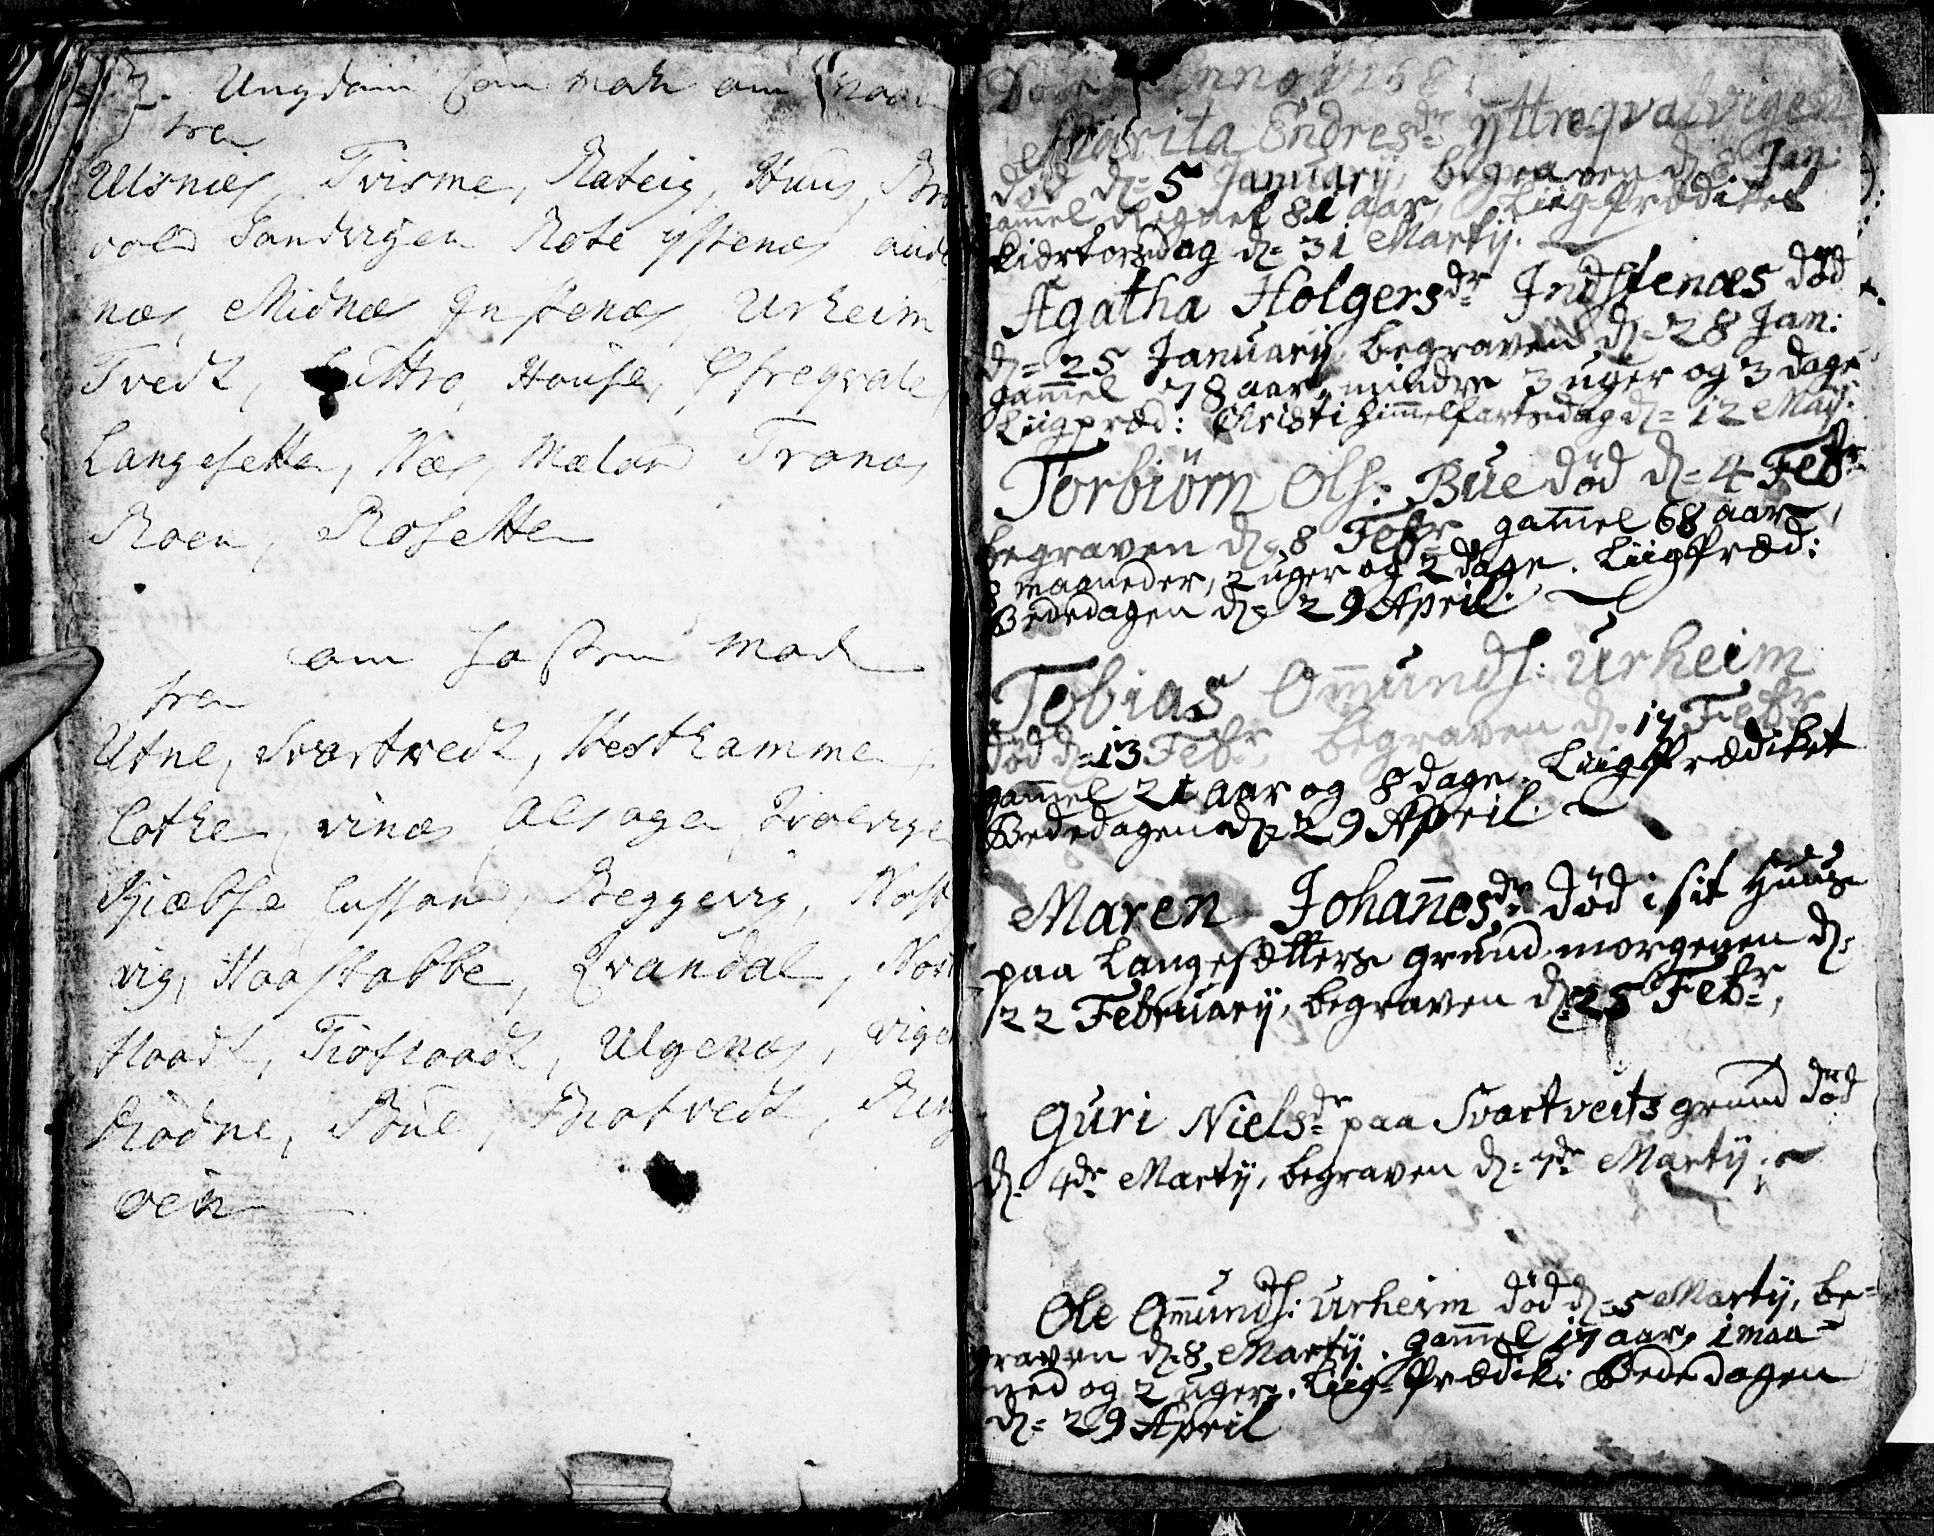 Ungdom som mode om
fra
Ulsnes, Tvisme, Rateig, Huus,
vold Sandvigen Rote ystenæs
næs, Midnæs Instenæs, Urheim
Tvedt, Luttro, House,
Langesetter, Næs, Mæland Tronæs
Roen, Rosetter
om Fasten mode
fra
Utne, Svartvedt, Hesthammer,
Lothe, vinæs Alsager
Biæbse, Beggevig,
vig, Haastabbe, Qvandal,
Haadt, Ulgenæs,
Rødne, Bue, Rin
ven
Døde Anno 1768
Marita Endresdr yttreqvalvigen
død d. 5 January, begraven d. 8 Jan:
gammel regnet 81 aar, Liig-Prædiket
Skiertorsdag d. 31 Martij.
Agatha Holgersdr Indstenæs død
d. 25 January, begraven d. 28 Jan:
gammel 78 aar, mindre 3 uger og 3 dage
Liigpræd: Christi himmelfartsdag d. 12 Maij.
Torbiørn Ols: Bue død d. 4 Febr
begraven d. 8 Febr gammel 68 aar,
8 maaneder, 2 uger og 2 dage. Liigpræd:
Bededagen d. 29 April.
Tobias Omunds: Urheim
død d. 13 Febr, begraven d. 17 Febr
gammel 21 aar og 8 dage. Liigprædiket
Bededagen d. 29 April.
Maren Johanesdr død i sit Huus
paa Langesætters grund morgenen d.
22 February, begraven d. 25 Febr,
Guri Nielsdr paa Svartveits grund død
d. 4de Martij, begraven d. 7de Martij.
Ole Omunds: Urheim død d. 5 Martij, be-
graven d. 8 Martij. gammel 17 aar, 1 maa-
ned og 2 uger. Liig-Prædik: Bededagen
d. 29 April